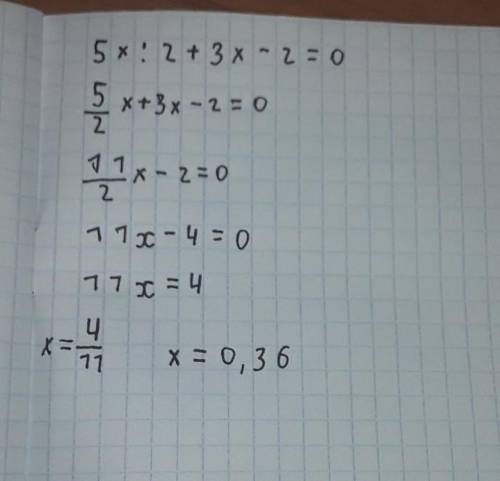 5x : 2 + 3x - 2 = 0
5/2 x + 3x - 2 = 0
11/2 x - 2 = 0
11x - 4 = 0
11x = 4
x = 4/11 x = 0,36